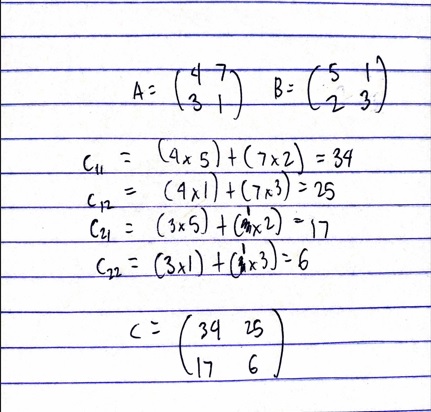 A = ( 4 7 ) B = ( 5 1 )
( 3 1 ) ( 2 3 )
C₁₁ = (4 x 5) + (7 x 2) = 34
C₁₂ = (4 x 1) + (7 x 3) = 25
C₂₁ = (3 x 5) + (1 x 2) = 17
C₂₂ = (3 x 1) + (1 x 3) = 6
C = ( 34 25 )
( 17 6 )